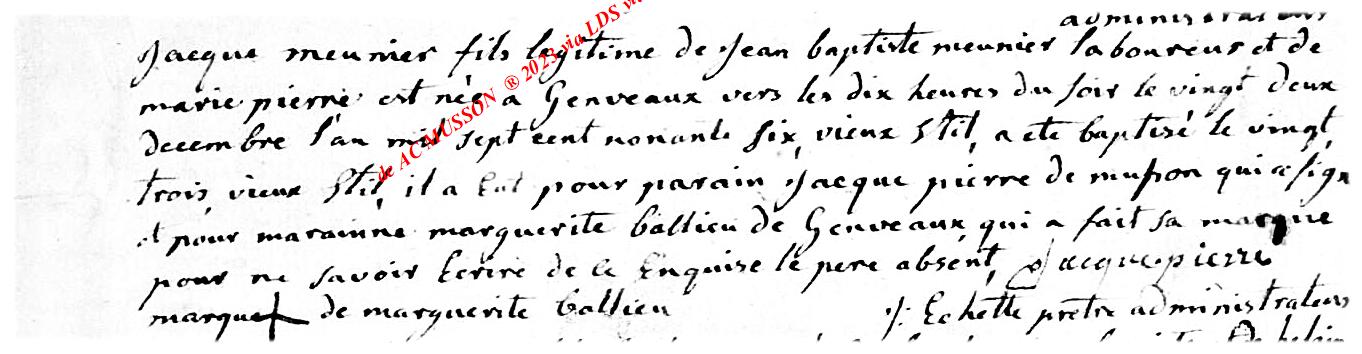 administrateurs
Jacque meunier fils legitime de Jean baptiste meunier laboureur et de
marie pierre est née a Genveaux vers les dix heures du soir le vingt deux
decembre l'an mil sept cent nonante six, vieux Stil, a ete baptisé le vingt
trois, vieux Stil, il a Eut pour parain Jacque pierre de musson qui a signé
et pour marainne marguerite ballieu de Genveaux qui a fait sa marque
pour ne savoir Ecrire de ce Enquise le pere absent, Jacque pierre
marque de marguerite ballieu J: Echette pretre administrateur
de AC MUSSON ® 2023 via LDS via